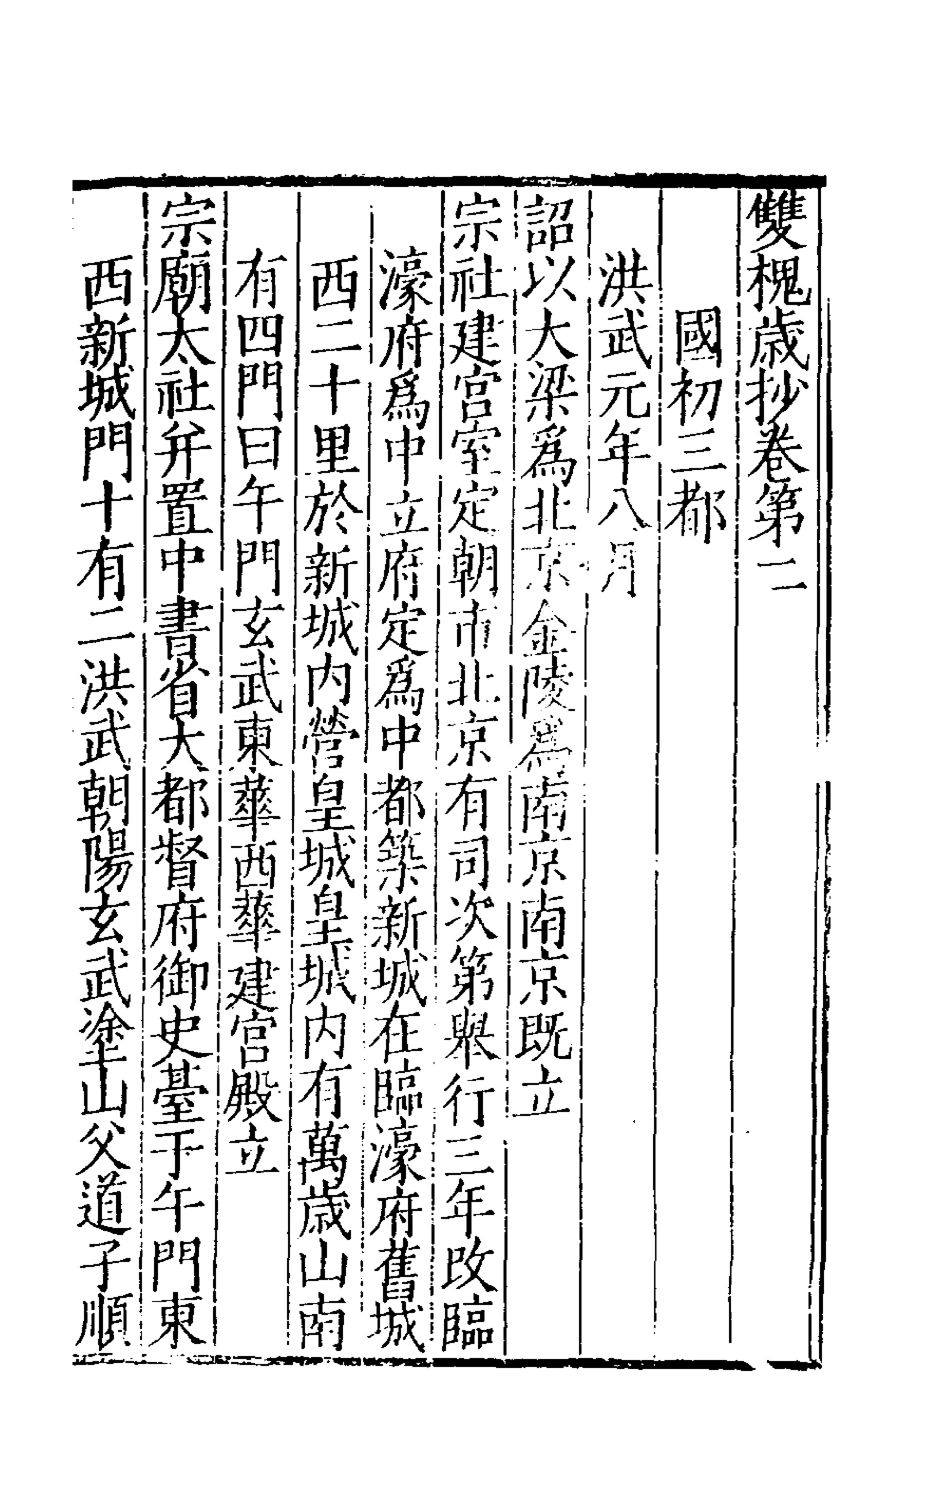 雙槐歲抄卷第二
國初三都
洪武元年八月
詔以大梁爲北京金陵爲南京南京既立
宗社建宮室定朝市北京有司次第舉行三年改臨
濠府爲中立府定爲中都築新城在臨濠府舊城
西二十里於新城内營皇城皇城内有萬歲山南
有四門曰午門玄武東華西華建宮殿立
宗廟太社并置中書省大都督府御史臺于午門東
西新城門十有二洪武朝陽玄武塗山父道子順